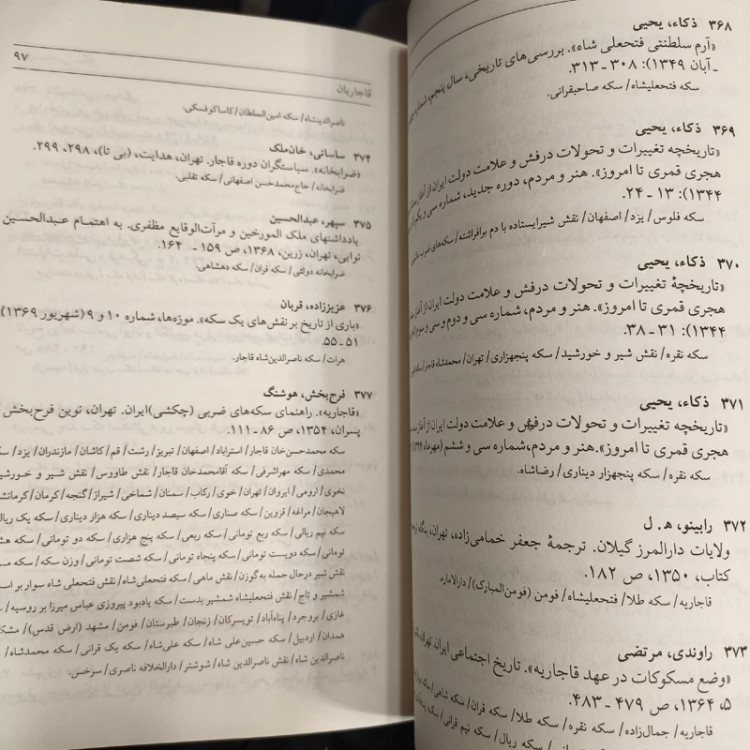 ۳۶۸ ذکاء، یحیی
«آرم سلطنتی فتحعلی شاه». بررسی‌های تاریخی، سال پنجم،
ـ آبان ۱۳۴۹): ۳۰۸ ـ ۳۱۳.
سکه فتحعلیشاه/ سکه صاحبقرانی.
۳۶۹ ذکاء، یحیی
«تاریخچه تغییرات و تحولات درفش و علامت دولت ایران از آغاز
هجری قمری تا امروز». هنر و مردم، دوره جدید، شماره سی و یکم
۱۳۴۴): ۱۳ ـ ۲۴.
سکه فلوس/ یزد/ اصفهان/ نقش شیرایستاده با دم برافراشته/ سکه‌های ضرب
۳۷۰ ذکاء، یحیی
«تاریخچهٔ تغییرات و تحولات درفش و علامت دولت ایران از آغاز
هجری قمری تا امروز». هنر و مردم، شماره سی و دوم و سی و سوم
۱۳۴۴): ۳۱ ـ ۳۸.
سکه نقره/ نقش شیر و خورشید/ سکه پنجهزاری/ تهران/ محمدشاه قاجار/
۳۷۱ ذکاء، یحیی
«تاریخچه تغییرات و تحولات درفش و علامت دولت ایران از آغاز
هجری قمری تا امروز». هنر و مردم، شماره سی و ششم (مهرماه
سکه نقره/ سکه پنجهزار دیناری/ رضاشاه.
۳۷۲ رابینو، ه‍. ل
ولایات دارالمرز گیلان. ترجمهٔ جعفر خمامی‌زاده، تهران، بنگاه
کتاب، ۱۳۵۰، ص ۱۸۲.
قاجاریه/ سکه طلا/ فتحعلیشاه/ فومن (فومن‌المبارک)/ دارالاماره
۳۷۳ راوندی، مرتضی
«وضع مسکوکات در عهد قاجاریه». تاریخ اجتماعی ایران، تهران،
۵، ۱۳۶۴، ص ۴۷۹ ـ ۴۸۳.
قاجاریه/ جمال‌زاده/ سکه نقره/ سکه طلا/ سکه قران/ سکه شاهی/
دیناری/ سکه ریال/ سکه نیم قرانی/
قاجاریان
۹۷
ناصرالدینشاه/ سکه امین‌السلطان/ کاساکوفسکی.
۳۷۴ ساسانی، خان‌ملک
«ضرابخانه». سیاستگران دوره قاجار. تهران، هدایت، (بی تا)، ۲۹۸، ۲۹۹.
ضرابخانه/ حاج‌محمدحسن اصفهانی/ سکه تقلبی.
۳۷۵ سپهر، عبدالحسین
یادداشتهای ملک المورخین و مرآت‌الوقایع مظفری. به اهتمام عبدالحسین
نوایی، تهران، زرین، ۱۳۶۸، ص ۱۵۹ ـ ۱۶۴.
ضرابخانه دولتی/ سکه قران/ سکه دهشاهی.
۳۷۶ عزیززاده، قربان
«باری از تاریخ بر نقش‌های یک سکه». موزه‌ها، شماره ۱۰ و ۹ (شهریور ۱۳۶۹)
۵۱ ـ ۵۵.
هرات/ سکه ناصرالدین‌شاه قاجار.
۳۷۷ فرح‌بخش، هوشنگ
«قاجاریه». راهنمای سکه‌های ضربی (چکشی)ایران. تهران، نوین فرح‌بخش
پسران، ۱۳۵۴، ص ۸۶ ـ ۱۱۱.
سکه محمدحسن‌خان قاجار/ استراباد/ اصفهان/ تبریز/ رشت/ قم/ کاشان/ مازندران/ یزد/
محمدی/ سکه مهراشرفی/ سکه آقامحمدخان قاجار/ نقش طاووس/ نقش شیر و خورشید
نخوی/ ارومی/ ایروان/ تهران/ خوی/ رکاب/ سمنان/ شماخی/ شیراز/ گنجه/ کرمان/
لاهیجان/ مراغه/ قزوین/ سکه صناری/ سکه سیصد دیناری/ سکه هزار دیناری/ سکه یک ریال
سکه نیم ریالی/ سکه ربع تومانی/ سکه ربعی/ سکه پنج هزاری/ سکه دو تومانی/ سکه
تومانی/ سکه دویست تومانی/ سکه پنجاه تومانی/ سکه شصت تومانی/ وزن سکه/ سکه
نقش شیر درحال حمله به‌گوزن/ نقش ماهی/ سکه فتحعلی‌شاه/ نقش فتحعلی شاه سوار بر
شمشیر و تاج/ نقش فتحعلیشاه شمشیر بدست/ سکه یادبود پیروزی عباس میرزا بر روسیه/
غازی/ بروجرد/ پناه‌آباد/ تویسرکان/ زنجان/ طبرستان/ فومن/ مشهد (ارض قدس)/
همدان/ اردبیل/ سکه حسین‌علی شاه/ سکه علی‌شاه/ سکه یک قرانی/ سکه محمدشاه/
ناصرالدین شاه/ نقش ناصرالدین شاه/ شوشتر/ دارالخلافه ناصری/ سرخس.